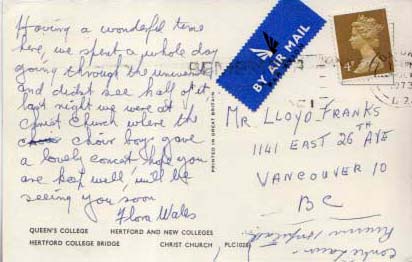 Having a wondeful time
here, we spent a whole day
going through the universi
and didn't see half of it,
last night we were at
Christ Church where the
choir boys gave
a lovely concert hope you
are keep well, will be
seeing you soon
Flora Wales
QUEEN'S COLLEGE HERTFORD AND NEW COLLEGES
HERTFORD COLLEGE BRIDGE CHRIST CHURCH PLC1028
PRINTED IN GREAT BRITAIN
BY AIR MAIL
4P
MR LLOYD FRANKS
1141 EAST 26TH AVE
VANCOUVER 10
BC